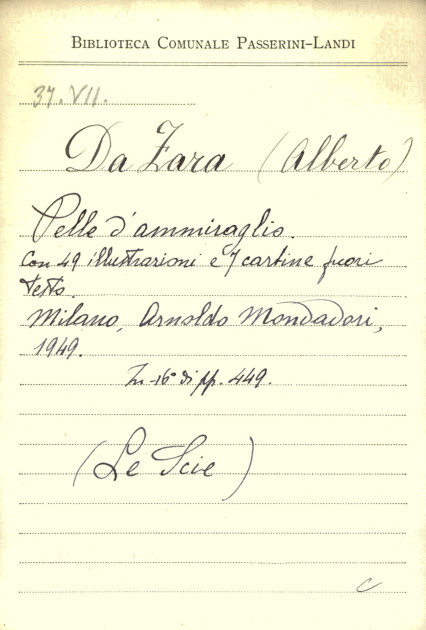 BIBLIOTECA COMUNALE PASSERINI-LANDI
37.VII.
Da Zara (Alberto)
Pelle d'ammiraglio.
Con 49 illustrazioni e 7 cartine fuori
testo.
Milano, Arnoldo Mondadori,
1949.
In-16° di pp. 449.
(Le Scie)
C